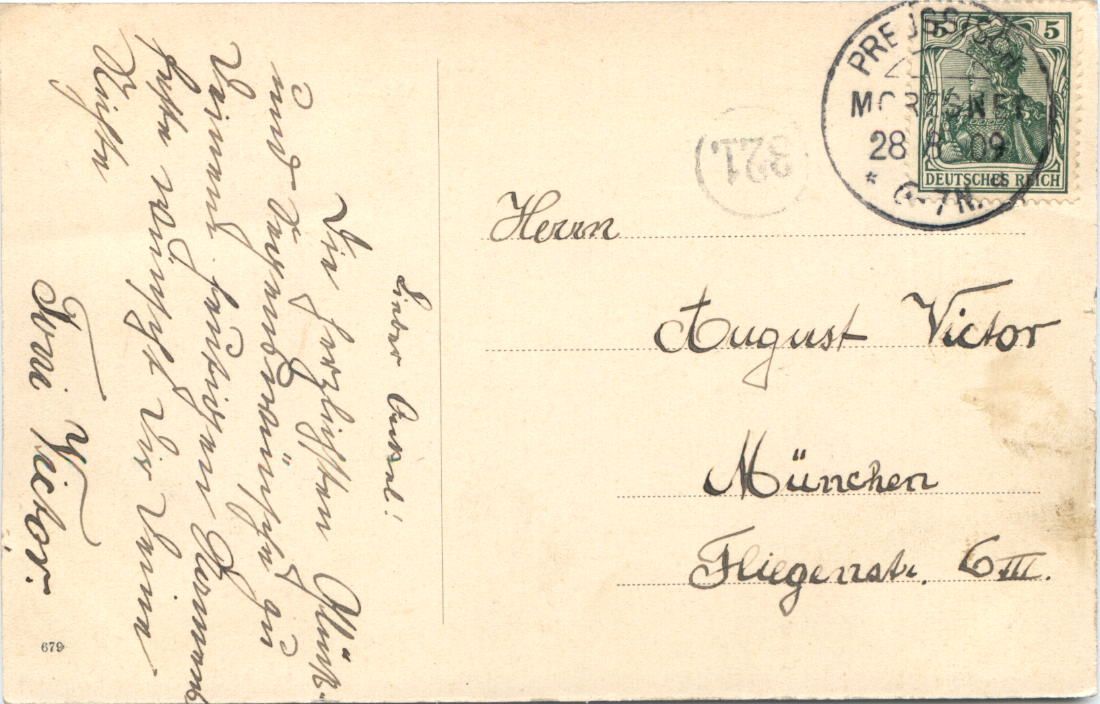 Lieber Onkel!
Die herzlichsten Glück-
und Segenswünsche zu
Deinem heutigen Namens
feste wünscht Dir Deine
Nichte
Toni Victor.
679
PREUSSISCH
MORESNET
28 8 09
* 6-7N.
5 5
DEUTSCHES REICH
321.
Herrn
August Victor
München
Fliegenstr. 6 III.